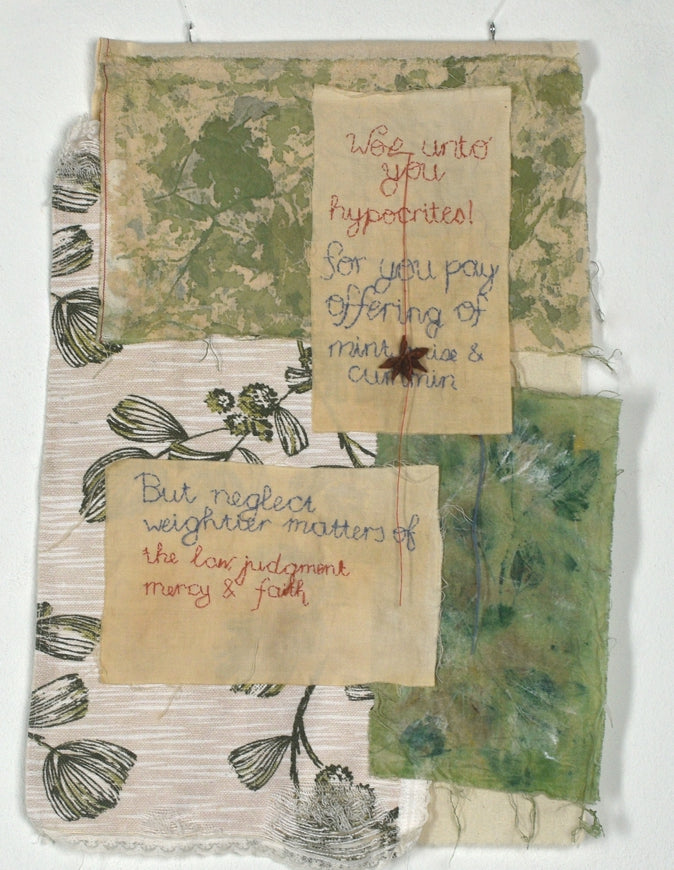 Woe unto
you
hypocrites!
for you pay
offering of
mint anise &
cummin
But neglect
weightier matters of
the law judgment
mercy & faith